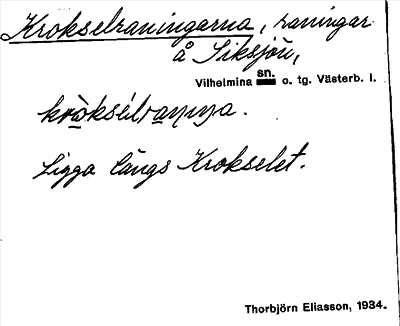 Krokselraningarna, raningar
å Siksjön,
Vilhelmina sn. o. tg. Västerb. l.
Ligga längs Krokselet.
Thorbjörn Eliasson, 1934.